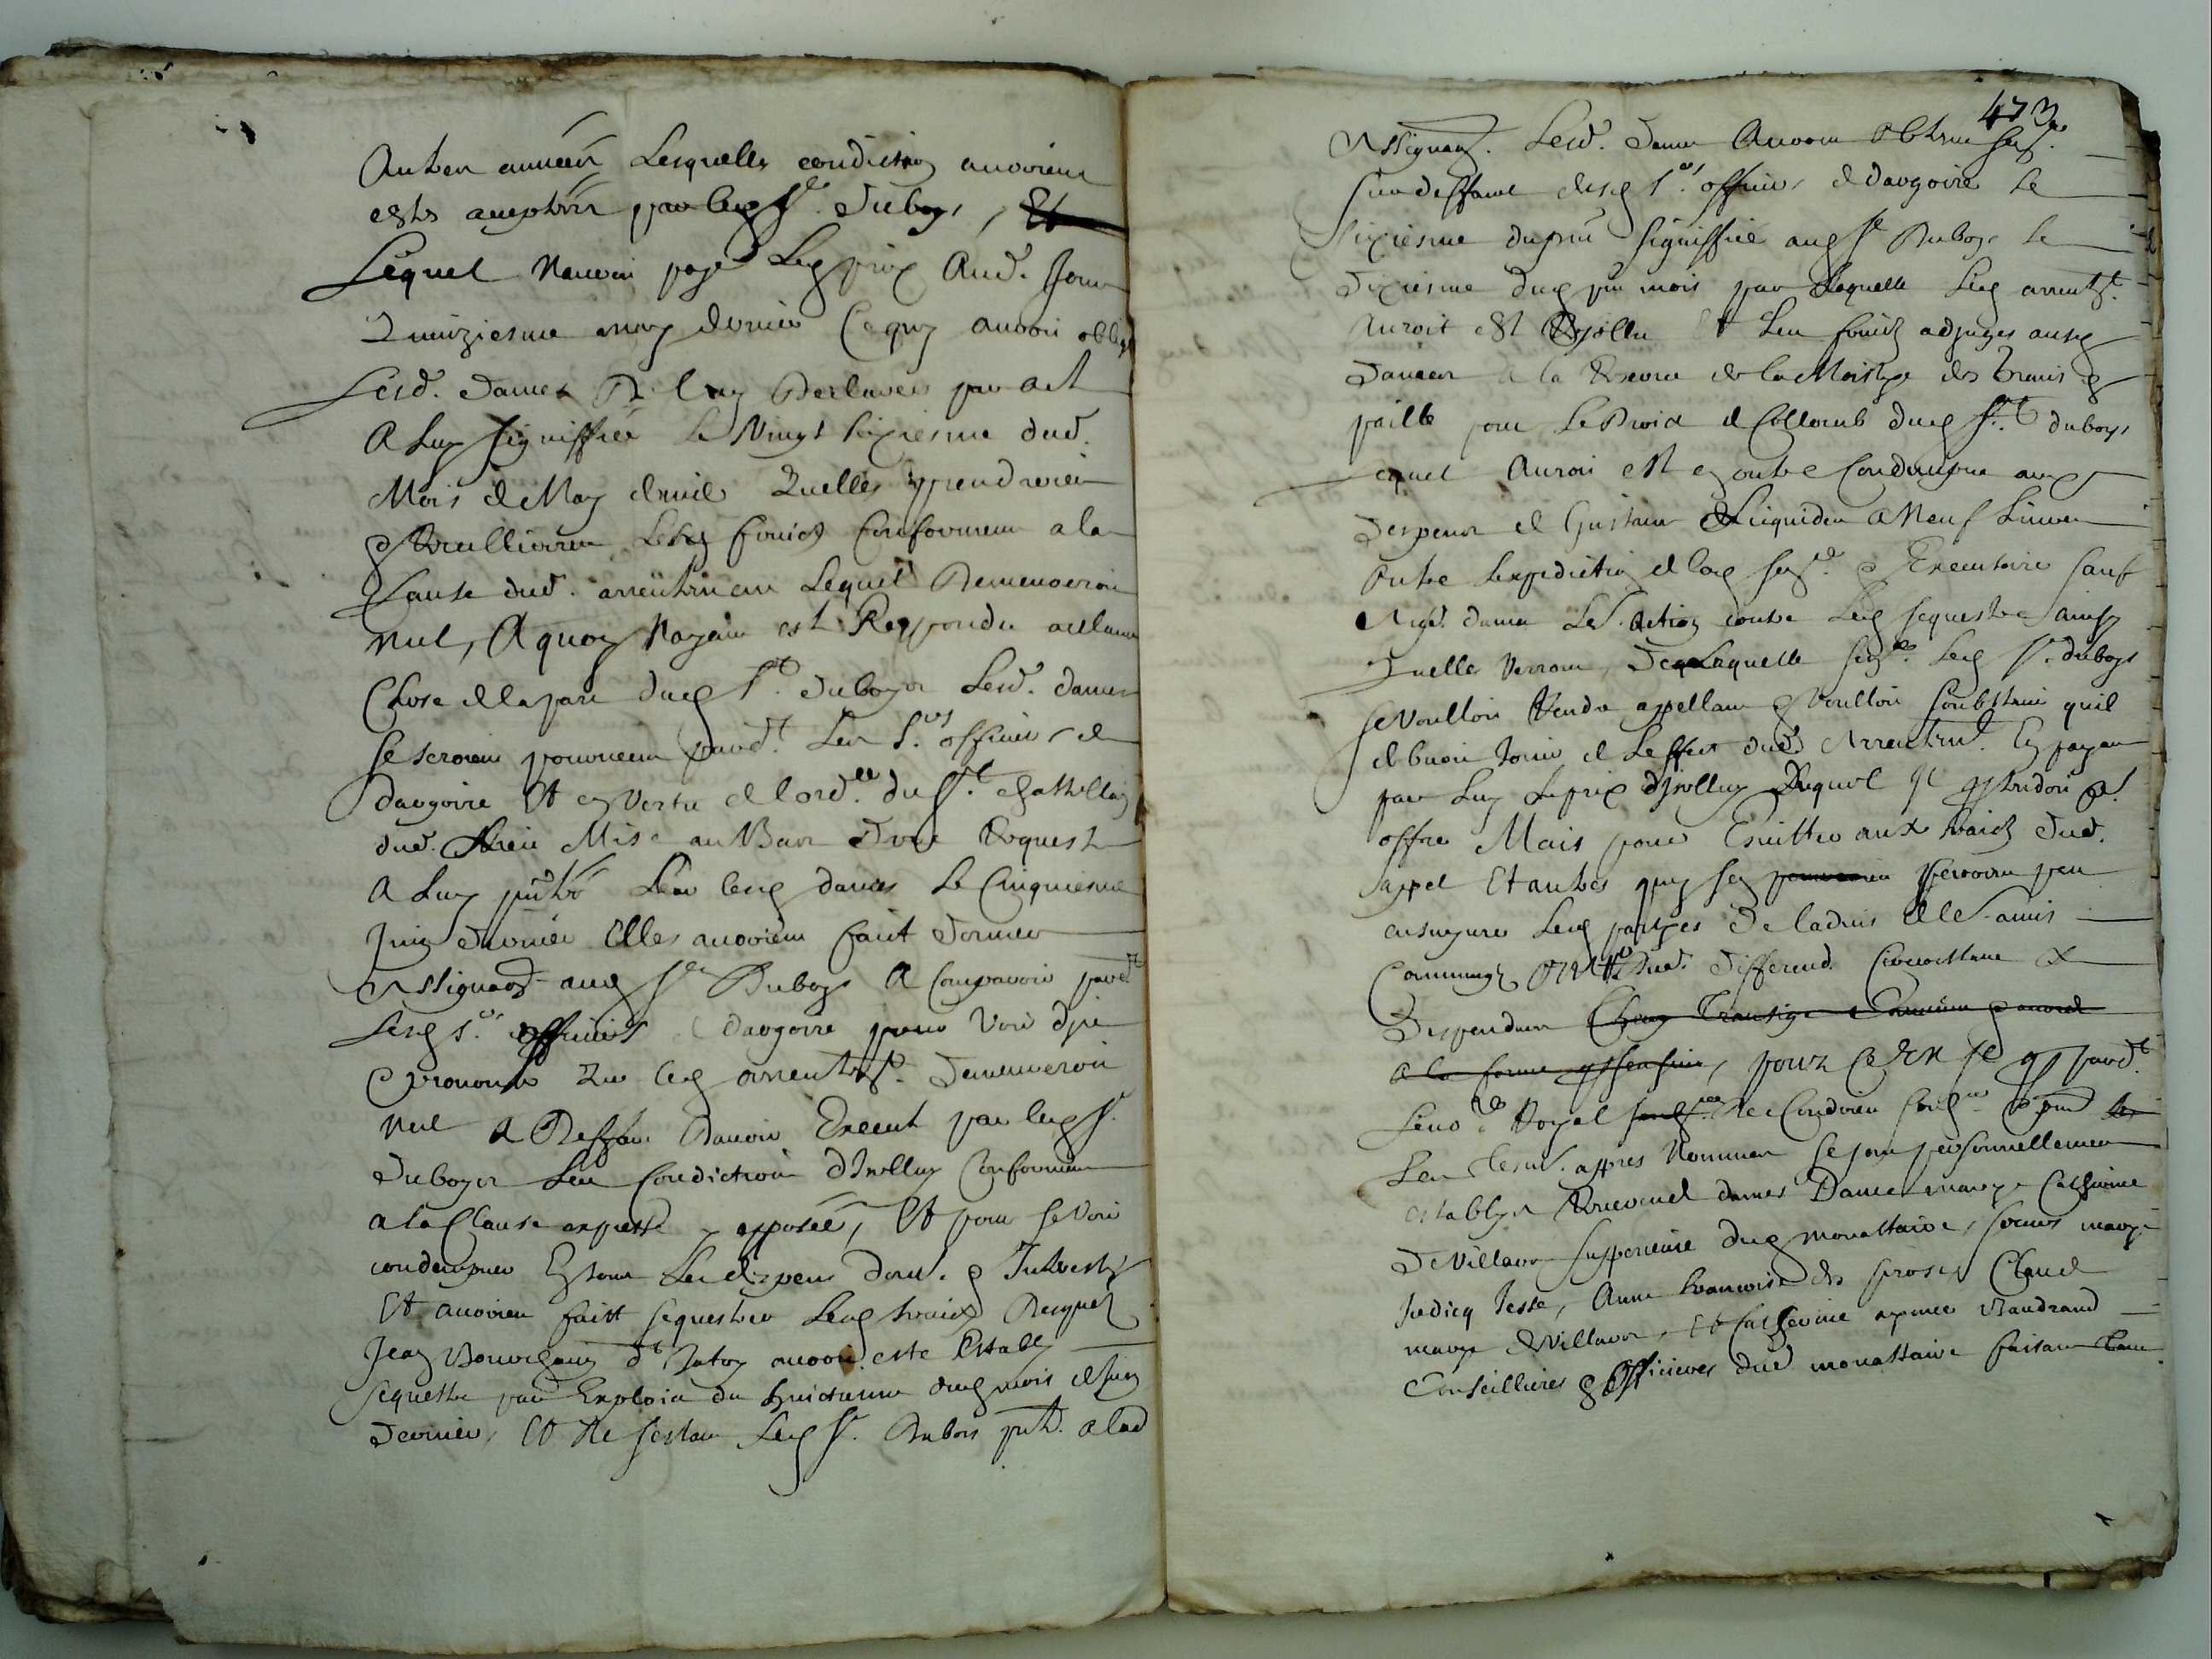 Autres années Lesquelles condictions auroient
esté acceptées par led Sr. Duboys, Et
Lequel Nauroit payé Led prix Aud. Jour
Quinziesme may dernier Ce quy auroit oblige
Lesd. Dames De luy Declarer par act
A Luy signiffié Le Vingt sixiesme dud.
Mois de May dernier Quelles prendroient
& Recullieroient Lesd fruictz Conformement a la
Clause dud. arrentement Lequel Demeureroit
nul, A quoy Nayant est Respondu aulcune
Chose de la part dud Sr. Duboys Lesd. dames
se seroient pourveues pard.t Les Srs officiers de
dargoire Et en Vertu de lord.ce du Sr. Chastellain
dud. Lieu Mise au Bas Dune Requeste
A Luy pntée Par lesd dames Le Cinquiesme
Juin Dernier Elles auroient faict Donner
Assignaon aud Sr Duboys A Comparoir pard.t
Lesd Srs officiers de dargoire pour Voir dire
& prononcer Que led arrentemt. Demeureroit
nul A Deffaut Davoir Execut par led Sr.
Duboys Les Condictions dIcelluy Conformement
a la Clause expresse y apposée, Et pour se Voir
condempner En tous Les despens dom. & Interestz
Et auroient faict sequestrer Lesd fruictz Desquelz
Jean auroit esté Estably
sequestre par Exploict du huictiesme dud mois de Juin
Dernier, Et Ne sestant Led Sr. Dubois pnté. a lad
473
Assignaon. Lesd. Dames Auroient Obtenu sen.ce
Par deffaut desd Srs. officiers de dargoire le
sixiesme du pnt signiffiée aud Sr Duboys le
Dixiesme dud pnt mois par Laquelle Led arrentemt.
Auroit est Resollu Et Les fruictz adjuges ausd
Dames a la Reserve de la Moistye des grains &
paille pour Le Droict de Collomb dud Sr. duboys
Lequel Auroit est en outre Condempne aux
Despens de Linstance Liquidés A Neuf Livres
Outre Lexpedition de lad sen.ce & Executoire sauf
Ausd. dames Leur Action contre Led sequestre ainsy
Quelles Verront, De Laquelle sen.ce Led Sr. duboys
se Voulloit Rendre appellant & Voulloit soubstenir quil
debvoit Jouir de Leffect dud Arrentemt. En payant
par Luy Le prix dIcelluy Duquel Il pntendoit
offre Mais pour Esvitter aux fraictz Dud.
appel Et autres quy sen pourroient seroient peu
ensuyvre Lesd partyes De ladvis de Leurs amis
Communs Dud. Differend Circonstances &
Despendances Ont Transige Convenu & acorde
A la forme, pource Est Il que pard.t
Leno.re Royal de Condrieu soubz.ne & pnt les
Les tesm. appres Nommes se sont personnellement
establys Reverend dames Dame marye Catherine
De Villars Supperieure dud monastaire, soeurs marye
Judicq Jesse, Anne Francoise des Claud
marye de Villars, Et Catherine aymée Baudrand
Conseillieres & Officieres dud monastaire faisant tant